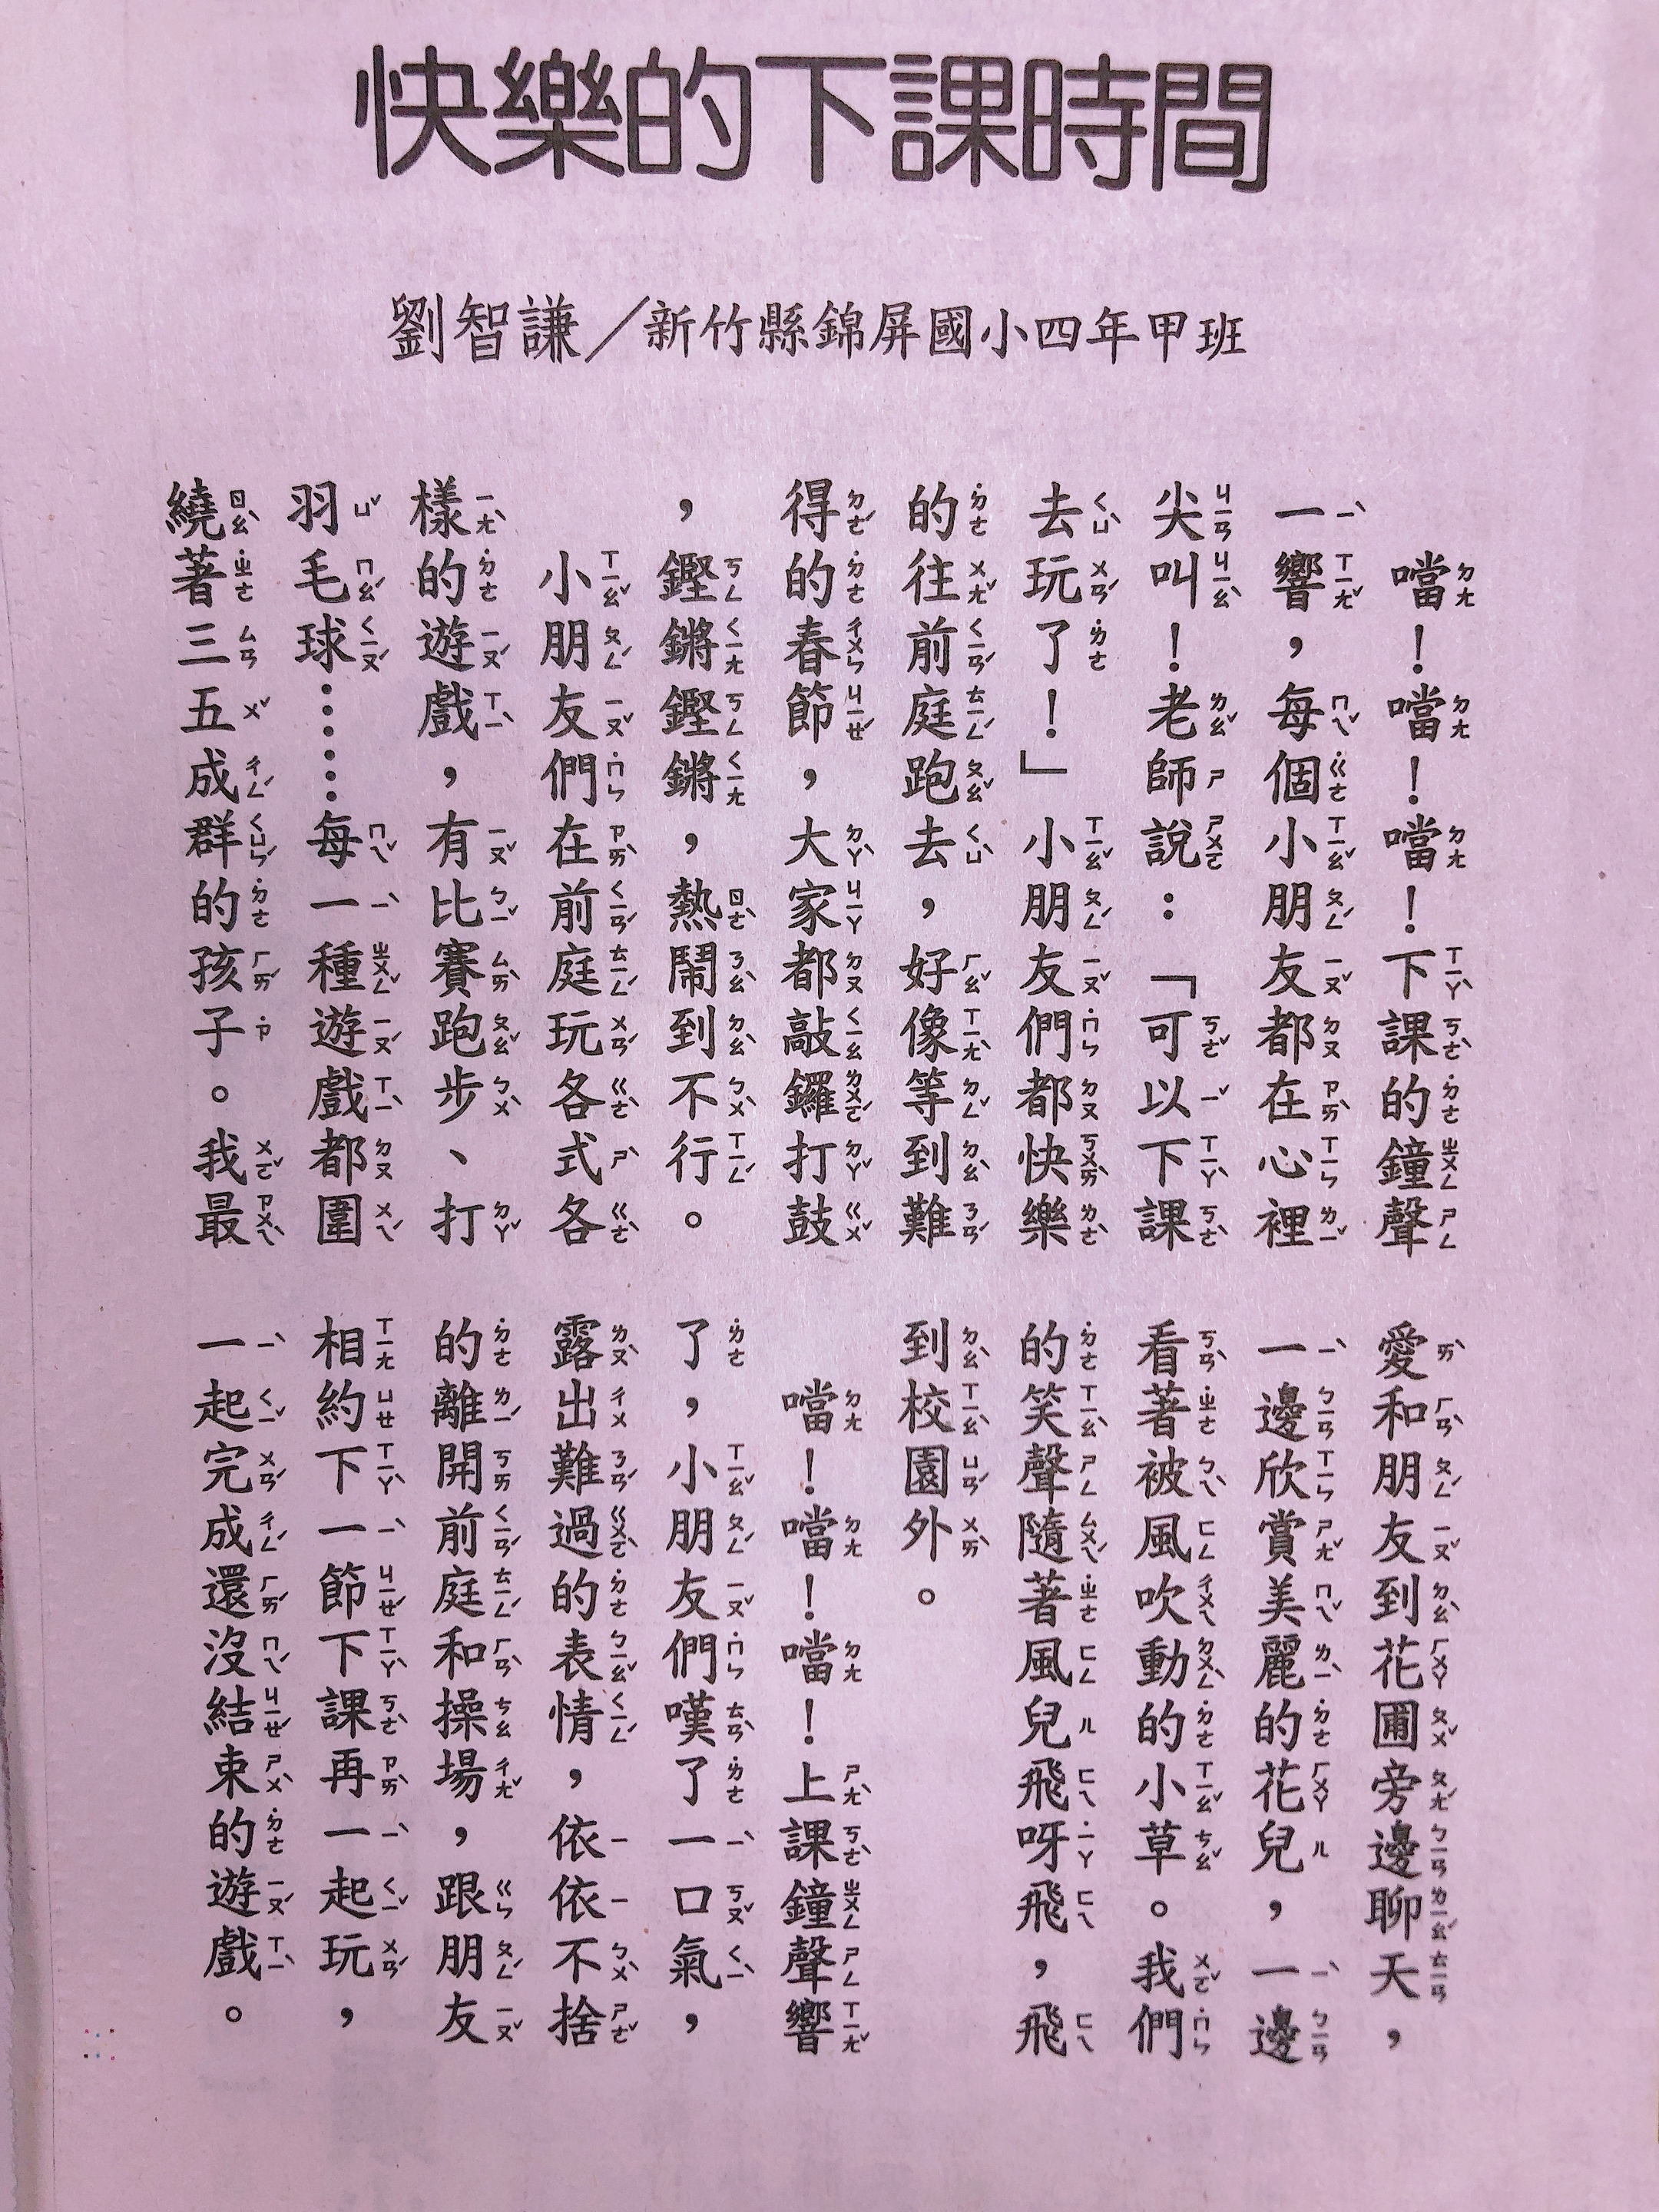 快樂的下課時間
劉智謙／新竹縣錦屏國小四年甲班
噹！噹！噹！下課的鐘聲
一響，每個小朋友都在心裡
尖叫！老師說：「可以下課
去玩了！」小朋友們都快樂
的往前庭跑去，好像等到難
得的春節，大家都敲鑼打鼓
，鏗鏘鏗鏘，熱鬧到不行。
小朋友們在前庭玩各式各
樣的遊戲，有比賽跑步、打
羽毛球……每一種遊戲都圍
繞著三五成群的孩子。我最
愛和朋友到花圃旁邊聊天，
一邊欣賞美麗的花兒，一邊
看著被風吹動的小草。我們
的笑聲隨著風兒飛呀飛，飛
到校園外。
噹！噹！噹！上課鐘聲響
了，小朋友們嘆了一口氣，
露出難過的表情，依依不捨
的離開前庭和操場，跟朋友
相約下一節下課再一起玩，
一起完成還沒結束的遊戲。